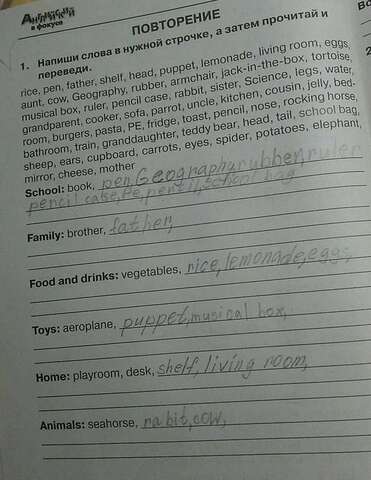 Английский
в фокусе
ПОВТОРЕНИЕ
1. Напиши слова в нужной строчке, а затем прочитай и
переведи.
rice, pen, father, shelf, head, puppet, lemonade, living room, eggs,
aunt, cow, Geography, rubber, armchair, jack-in-the-box, tortoise,
musical box, ruler, pencil case, rabbit, sister, Science, legs, water,
grandparent, cooker, sofa, parrot, uncle, kitchen, cousin, jelly, bed-
room, burgers, pasta, PE, fridge, toast, pencil, nose, rocking horse,
bathroom, train, granddaughter, teddy bear, head, tail, school bag,
sheep, ears, cupboard, carrots, eyes, spider, potatoes, elephant,
mirror, cheese, mother
School: book, pen, Geography rubber, ruler
pencil case, Pe, pencil, school bag
Family: brother, father,
Food and drinks: vegetables, rice, lemonade, eggs,
Toys: aeroplane, puppet, musical box,
Home: playroom, desk, shelf, living room,
Animals: seahorse, rabit, cow,
2